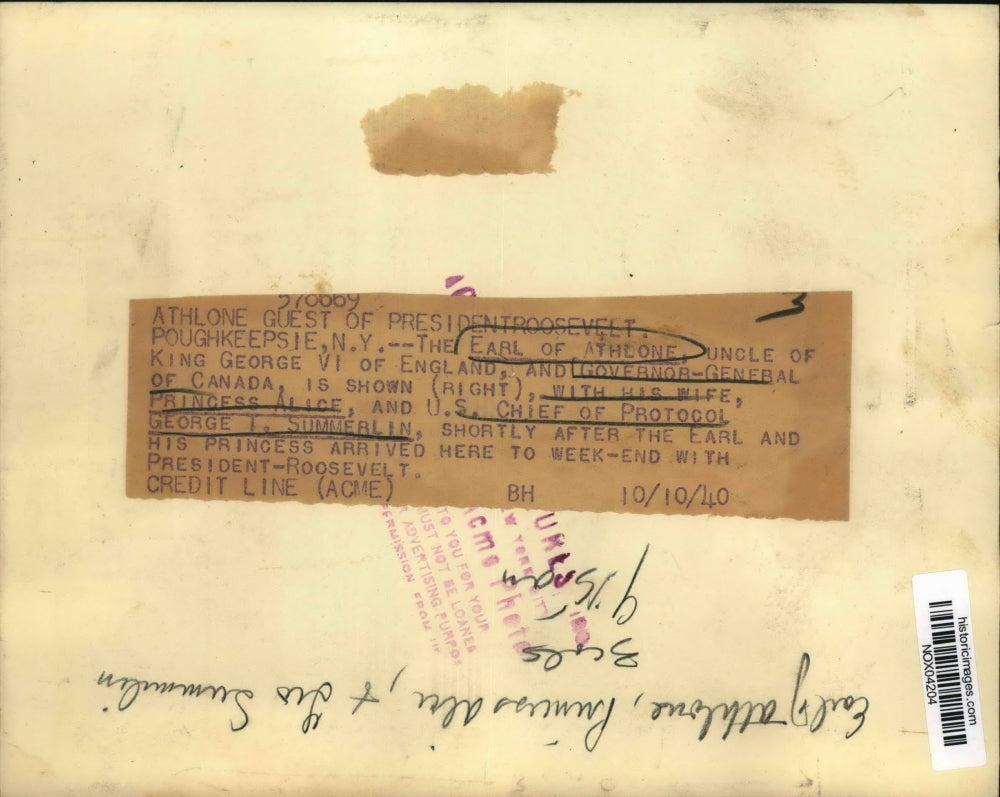 576669
ATHLONE GUEST OF PRESIDENTROOSEVELT.
POUGHKEEPSIE, N.Y.--THE EARL OF ATHLONE, UNCLE OF
KING GEORGE VI OF ENGLAND, AND GOVERNOR-GENERAL
OF CANADA, IS SHOWN (RIGHT), WITH HIS WIFE,
PRINCESS ALICE, AND U.S. CHIEF OF PROTOCOL
GEORGE T. SUMMERLIN, SHORTLY AFTER THE EARL AND
HIS PRINCESS ARRIVED HERE TO WEEK-END WITH
PRESIDENT-ROOSEVELT.
CREDIT LINE (ACME) BH 10/10/40
Acme Photo
TO YOU FOR YOUR
MUST NOT BE LOANED
ADVERTISING PURPOS
PERMISSION FROM
Earl of Athlone, Princess Alice, + Geo Summerlin
historicimages.com
NOX04204